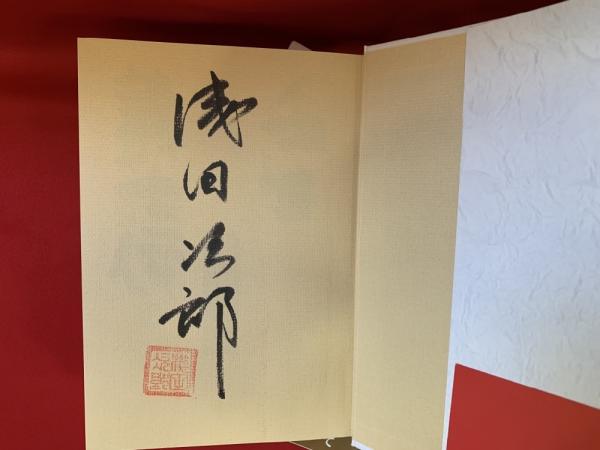 浅田次郎